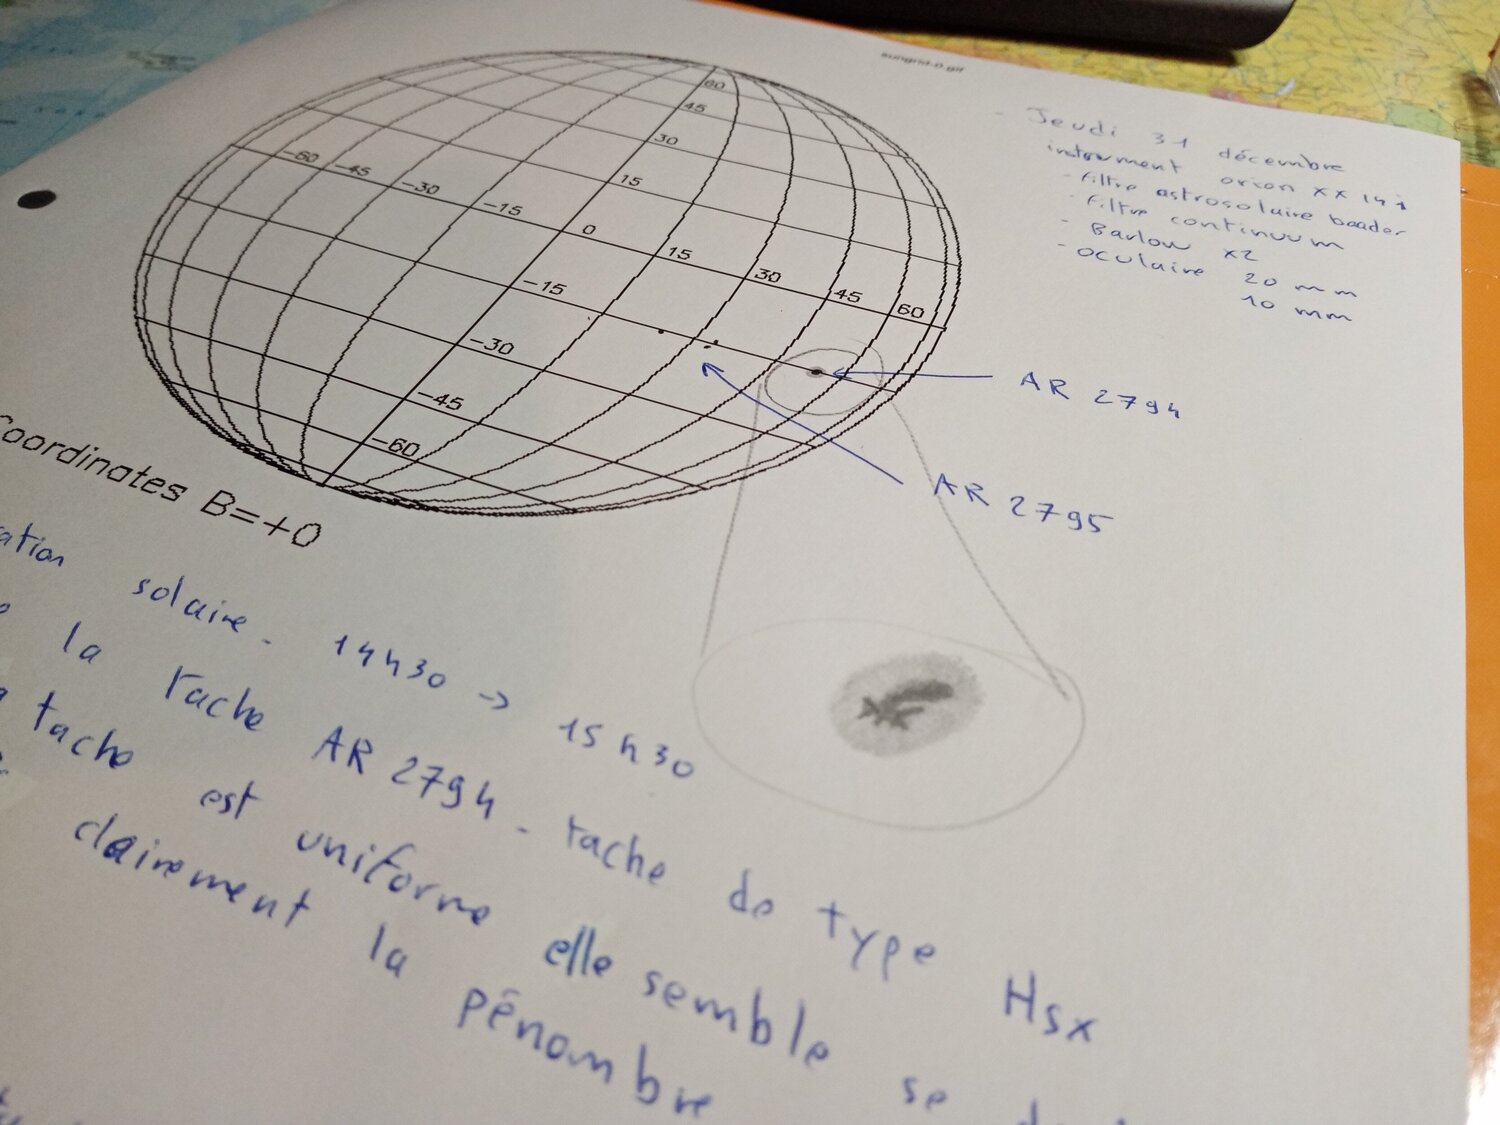 sungrid-0.gif
60
45
30
15
-60 -45 -30 -15 0 15 30 45 60
-15
-30
-45
-60
Coordinates B=+0
- Jeudi 31 décembre
instrument orion xx 14i
- filtre astrosolaire baader
- filtre continuum
- Barlow x2
- oculaire 20 mm
10 mm
AR 2794
AR 2795
solaire - 14h30 -> 15h30
la tache AR 2794 - tache de type Hsx
tache est uniforme elle semble se
clairement la pénombre